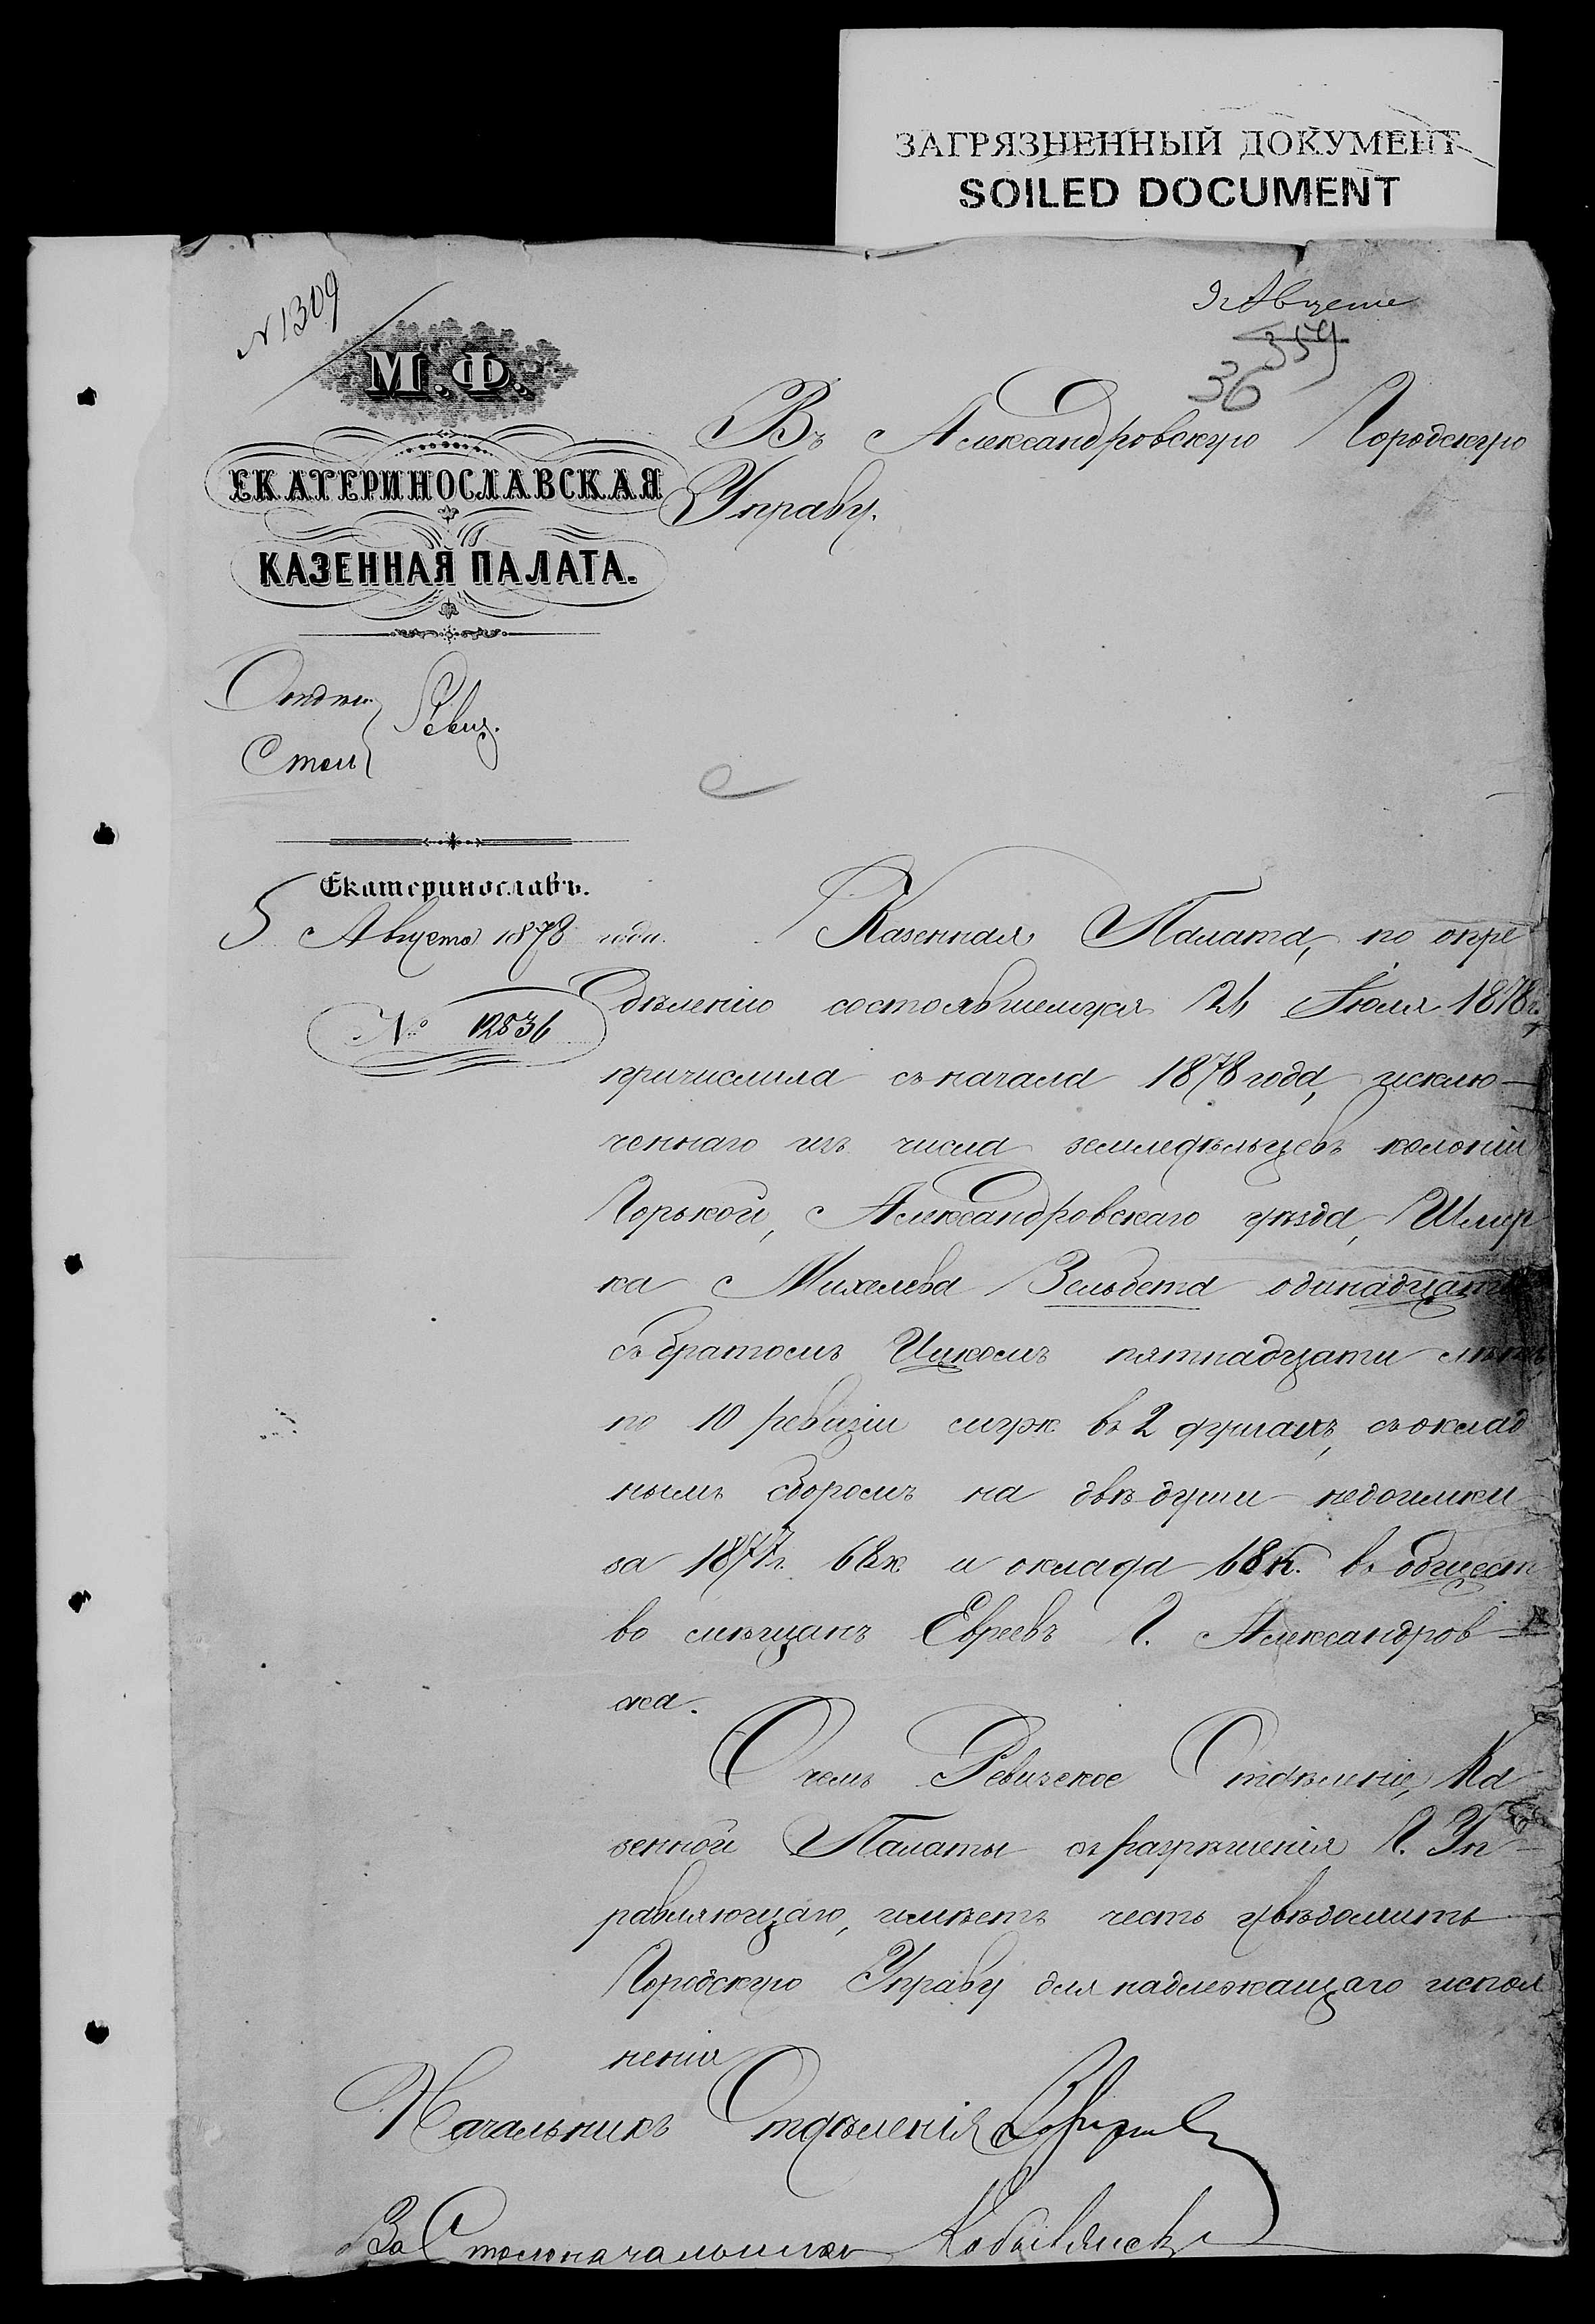 ЗАГРЯЗНЕННЫЙ ДОКУМЕНТ
SOILED DOCUMENT
N 1309
9 Августа
359
36
М.Ф.
ЕКАТЕРИНОСЛАВСКАЯ
КАЗЕННАЯ ПАЛАТА.
Въ Александровскую Городскую
Управу.
Отдѣл.
Столъ
Ревиз.
Екатеринославъ.
5 Августа 1878 года.
№ 12836
Казенная Палата, по опре
дѣленію состоявшемуся 26 Іюля 1878 г.
причислила съ начала 1878 года, исклю-
ченнаго изъ числа земледѣльцевъ колоніи
Горькой, Александровскаго уѣзда, Шмер
ка Михелева Зельбета одинадцати
съ братомъ Ицкомъ пятнадцати лѣтъ
по 10 ревизіи муж. въ 2 душахъ, съ оклад
нымъ сборомъ на двѣ души недоимки
за 1877 г. 68 к и оклада 68 к. въ общест
во мѣщанъ Евреевъ Г. Александров-
ска.
О чемъ Ревизское Отдѣленіе, Ка
зенной Палаты съ разрѣшенія Г. Уп-
равляющаго, имѣетъ честь увѣдомить
Городскую Управу для надлежащаго испол
ненія
Начальникъ Отдѣленія
За Столоначальника